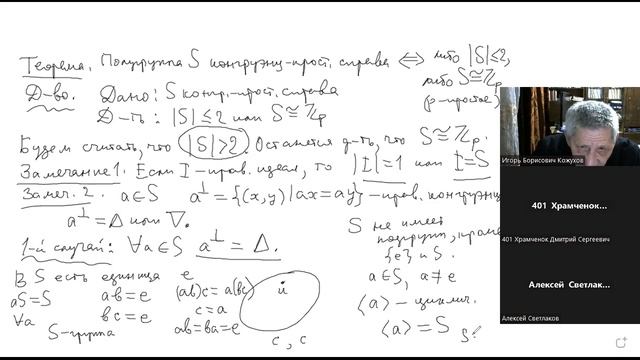 Теорема. Полугруппа S конгруэнц-прост. справа ⟺ либо |S|≤2,
либо S≅ℤp
(p-простое)
Д-во. Дано: S конгр.-прост. справа
Д-ть: |S|≤2 или S≅ℤp
Будем считать, что |S|>2. Останется д-ть, что S≅ℤp.
Замечание 1. Если I-прав. идеал, то |I|=1 или I=S
Замеч. 2. a∈S a^⊥={(x,y)|ax=ay}-прав. конгруэнц
a^⊥=Δ или ∇.
1-й случай: ∀a∈S a^⊥=Δ.
В S есть единица e
aS=S ab=e (ab)c=a(bc)
∀a bc=e c=a
S-группа ab=ba=e
c, c
S не имеет
подгрупп, кроме
{e} и S.
a∈S, a≠e
⟨a⟩-циклич.
⟨a⟩=S
Игорь Борисович Кожухов
401 Храмченок...
401 Храмченок Дмитрий Сергеевич
Алексей Светлак...
Алексей Светлаков